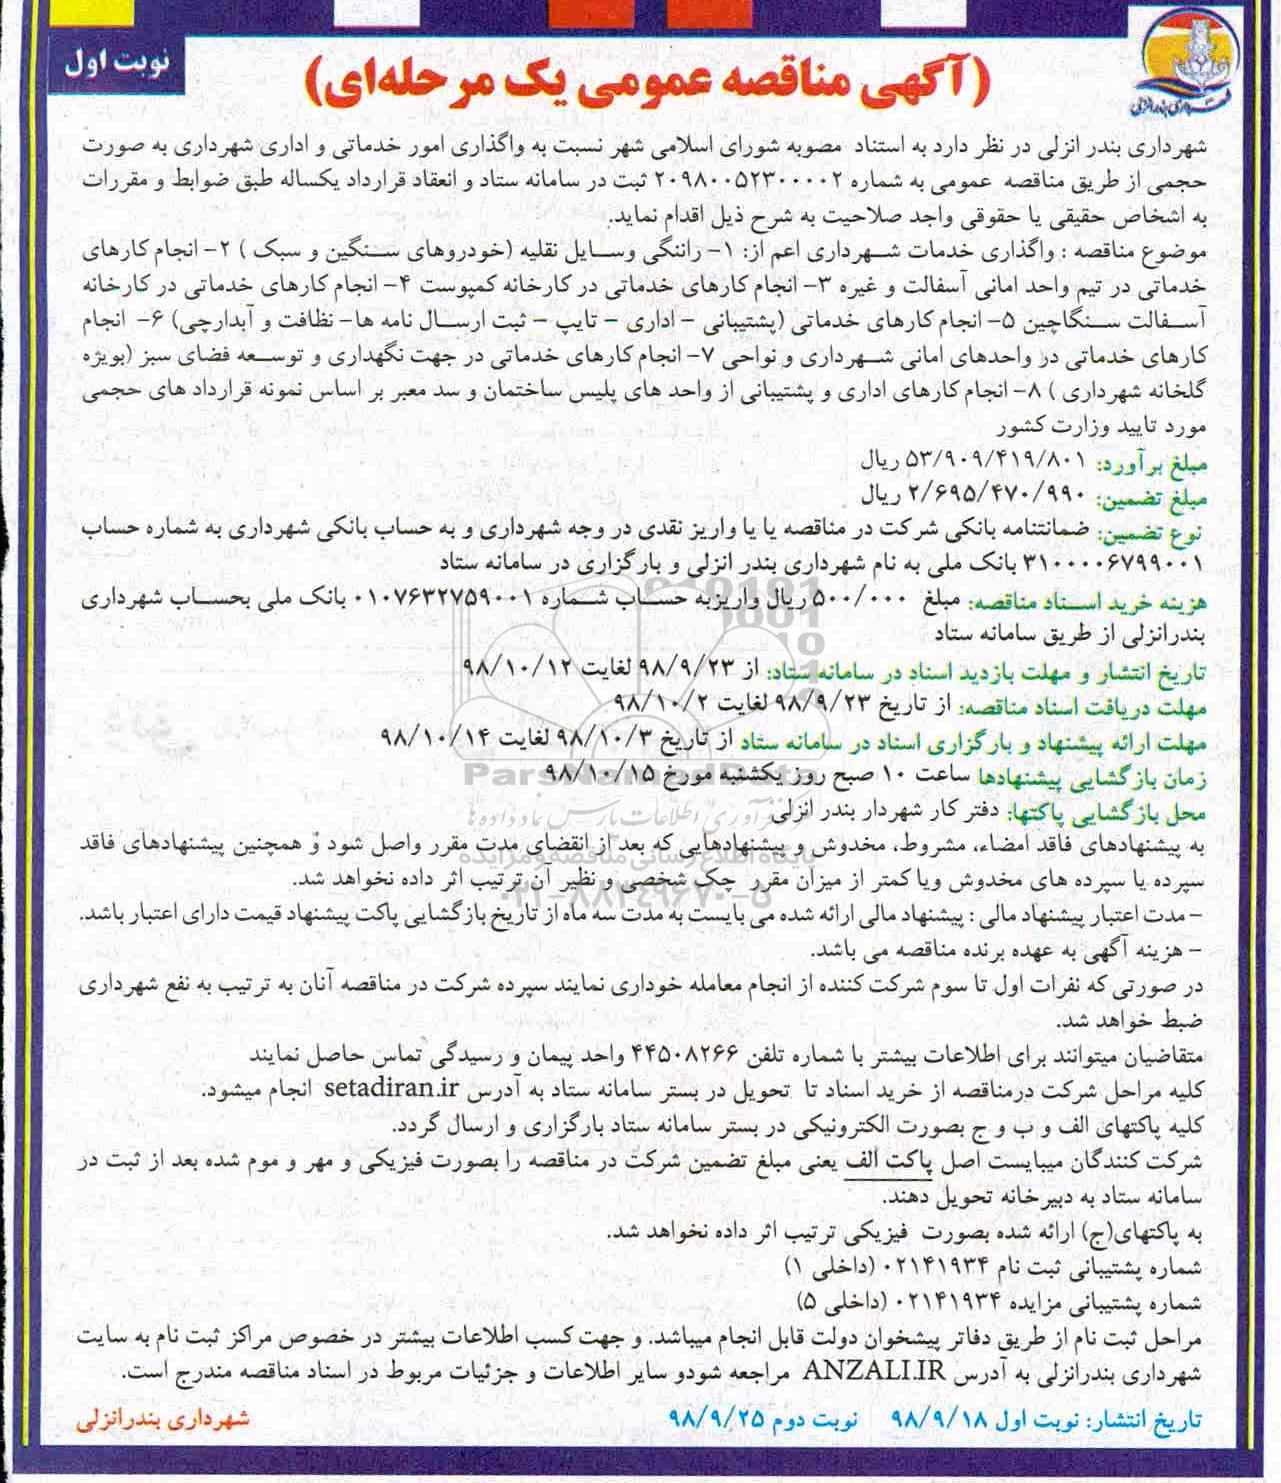 نوبت اول
شهرداری بندرانزلی
(آگهی مناقصه عمومی یک مرحله‌ای)
شهرداری بندر انزلی در نظر دارد به استناد مصوبه شورای اسلامی شهر نسبت به واگذاری امور خدماتی و اداری شهرداری به صورت
حجمی از طریق مناقصه عمومی به شماره ۲۰۹۸۰۰۵۲۳۰۰۰۰۲ ثبت در سامانه ستاد و انعقاد قرارداد یکساله طبق ضوابط و مقررات
به اشخاص حقیقی یا حقوقی واجد صلاحیت به شرح ذیل اقدام نماید.
موضوع مناقصه : واگذاری خدمات شهرداری اعم از: ۱- رانندگی وسایل نقلیه (خودروهای سنگین و سبک ) ۲- انجام کارهای
خدماتی در تیم واحد امانی آسفالت و غیره ۳- انجام کارهای خدماتی در کارخانه کمپوست ۴- انجام کارهای خدماتی در کارخانه
آسفالت سنگاچین ۵- انجام کارهای خدماتی (پشتیبانی - اداری - تایپ - ثبت ارسال نامه ها- نظافت و آبدارچی) ۶- انجام
کارهای خدماتی در واحدهای امانی شهرداری و نواحی ۷- انجام کارهای خدماتی در جهت نگهداری و توسعه فضای سبز (بویژه
گلخانه شهرداری ) ۸- انجام کارهای اداری و پشتیبانی از واحد های پلیس ساختمان و سد معبر بر اساس نمونه قرارداد های حجمی
مورد تایید وزارت کشور
مبلغ برآورد: ۵۳/۹۰۹/۴۱۹/۸۰۱ ریال
مبلغ تضمین: ۲/۶۹۵/۴۷۰/۹۹۰ ریال
نوع تضمین: ضمانتنامه بانکی شرکت در مناقصه یا یا واریز نقدی در وجه شهرداری و به حساب بانکی شهرداری به شماره حساب
۳۱۰۰۰۰۶۷۹۹۰۰۱ بانک ملی به نام شهرداری بندر انزلی و بارگزاری در سامانه ستاد
هزینه خرید اسناد مناقصه: مبلغ ۵۰۰/۰۰۰ ریال واریزبه حساب شماره ۰۱۰۷۶۳۲۷۵۹۰۰۱ بانک ملی بحساب شهرداری
بندرانزلی از طریق سامانه ستاد
تاریخ انتشار و مهلت بازدید اسناد در سامانه ستاد: از ۹۸/۹/۲۳ لغایت ۹۸/۱۰/۱۲
مهلت دریافت اسناد مناقصه: از تاریخ ۹۸/۹/۲۳ لغایت ۹۸/۱۰/۲
مهلت ارائه پیشنهاد و بارگزاری اسناد در سامانه ستاد از تاریخ ۹۸/۱۰/۳ لغایت ۹۸/۱۰/۱۴
زمان بازگشایی پیشنهادها ساعت ۱۰ صبح روز یکشنبه مورخ ۹۸/۱۰/۱۵
ParsNamadData
محل بازگشایی پاکتها: دفتر کار شهردار بندر انزلی
فرآوری اطلاعات پارس نماد داده ها
به پیشنهادهای فاقد امضاء، مشروط، مخدوش و پیشنهادهایی که بعد از انقضای مدت مقرر واصل شود و همچنین پیشنهادهای فاقد
پایگاه اطلاع رسانی مناقصه و مزایده
سپرده یا سپرده های مخدوش ویا کمتر از میزان مقرر چک شخصی و نظیر آن ترتیب اثر داده نخواهد شد.
۰۲۱-۸۸۳۴۹۶۷۰-۵
- مدت اعتبار پیشنهاد مالی : پیشنهاد مالی ارائه شده می بایست به مدت سه ماه از تاریخ بازگشایی پاکت پیشنهاد قیمت دارای اعتبار باشد.
- هزینه آگهی به عهده برنده مناقصه می باشد.
در صورتی که نفرات اول تا سوم شرکت کننده از انجام معامله خوداری نمایند سپرده شرکت در مناقصه آنان به ترتیب به نفع شهرداری
ضبط خواهد شد.
متقاضیان میتوانند برای اطلاعات بیشتر با شماره تلفن ۴۴۵۰۸۲۶۶ واحد پیمان و رسیدگی تماس حاصل نمایند
کلیه مراحل شرکت درمناقصه از خرید اسناد تا تحویل در بستر سامانه ستاد به آدرس setadiran.ir انجام میشود.
کلیه پاکتهای الف و ب و ج بصورت الکترونیکی در بستر سامانه ستاد بارگزاری و ارسال گردد.
شرکت کنندگان میبایست اصل پاکت الف یعنی مبلغ تضمین شرکت در مناقصه را بصورت فیزیکی و مهر و موم شده بعد از ثبت در
سامانه ستاد به دبیرخانه تحویل دهند.
به پاکتهای(ج) ارائه شده بصورت فیزیکی ترتیب اثر داده نخواهد شد.
شماره پشتیبانی ثبت نام ۰۲۱۴۱۹۳۴ (داخلی ۱)
شماره پشتیبانی مزایده ۰۲۱۴۱۹۳۴ (داخلی ۵)
مراحل ثبت نام از طریق دفاتر پیشخوان دولت قابل انجام میباشد. و جهت کسب اطلاعات بیشتر در خصوص مراکز ثبت نام به سایت
شهرداری بندرانزلی به آدرس ANZALI.IR مراجعه شودو سایر اطلاعات و جزئیات مربوط در اسناد مناقصه مندرج است.
تاریخ انتشار: نوبت اول ۹۸/۹/۱۸ نوبت دوم ۹۸/۹/۲۵
شهرداری بندرانزلی